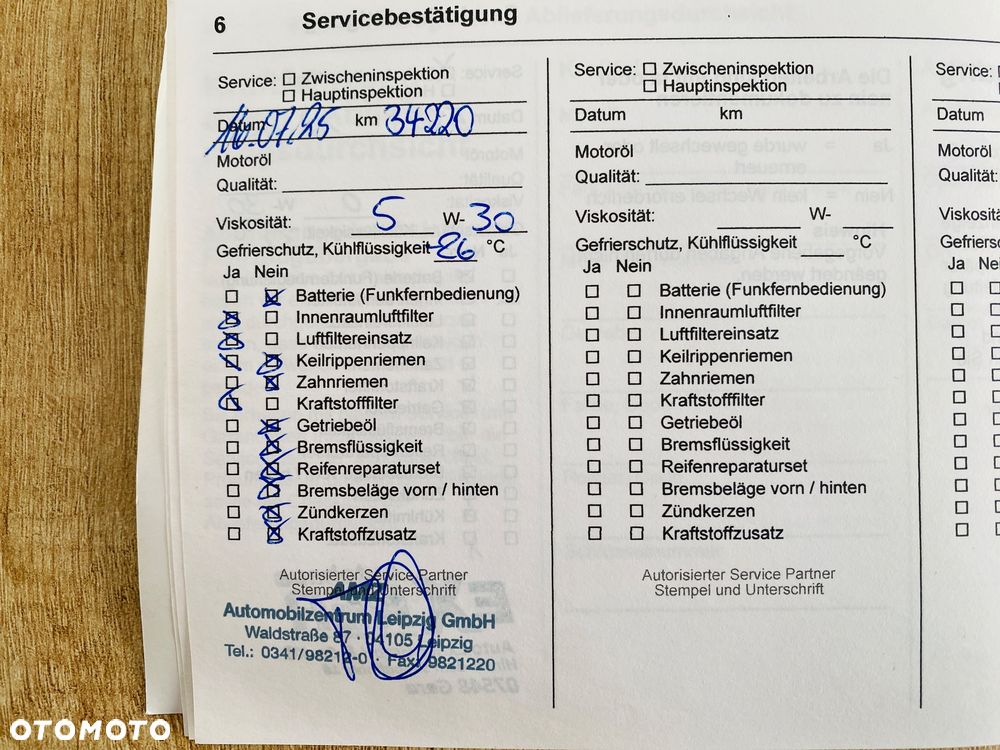 6 Servicebestätigung
Service: ☐ Zwischeninspektion
☐ Hauptinspektion
Datum 16.07.25 km 34220
Motoröl
Qualität:
Viskosität: 5 W-30
Gefrierschutz, Kühlflüssigkeit -26 °C
Ja Nein
Batterie (Funkfernbedienung)
Innenraumluftfilter
Luftfiltereinsatz
Keilrippenriemen
Zahnriemen
Kraftstofffilter
Getriebeöl
Bremsflüssigkeit
Reifenreparaturset
Bremsbeläge vorn / hinten
Zündkerzen
Kraftstoffzusatz
Autorisierter Service Partner
Stempel und Unterschrift
AMZ
Automobilzentrum Leipzig GmbH
Waldstraße 87 · 04105 Leipzig
Tel.: 0341/98212-0 · Fax: 9821220
Service: ☐ Zwischeninspektion
☐ Hauptinspektion
Datum km
Motoröl
Qualität:
Viskosität: W-
Gefrierschutz, Kühlflüssigkeit °C
Ja Nein
Batterie (Funkfernbedienung)
Innenraumluftfilter
Luftfiltereinsatz
Keilrippenriemen
Zahnriemen
Kraftstofffilter
Getriebeöl
Bremsflüssigkeit
Reifenreparaturset
Bremsbeläge vorn / hinten
Zündkerzen
Kraftstoffzusatz
Autorisierter Service Partner
Stempel und Unterschrift
Service:
Datum
Motoröl
Qualität:
Ja Nein
OTOMOTO